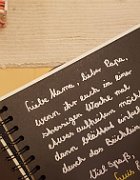 Liebe Mama, lieber Papa,
wenn ihr euch in einer
stressigen Woche mal
etwas aufheitern möchtet
dann blättert einfach
durch das Büchlein
Viel Spaß